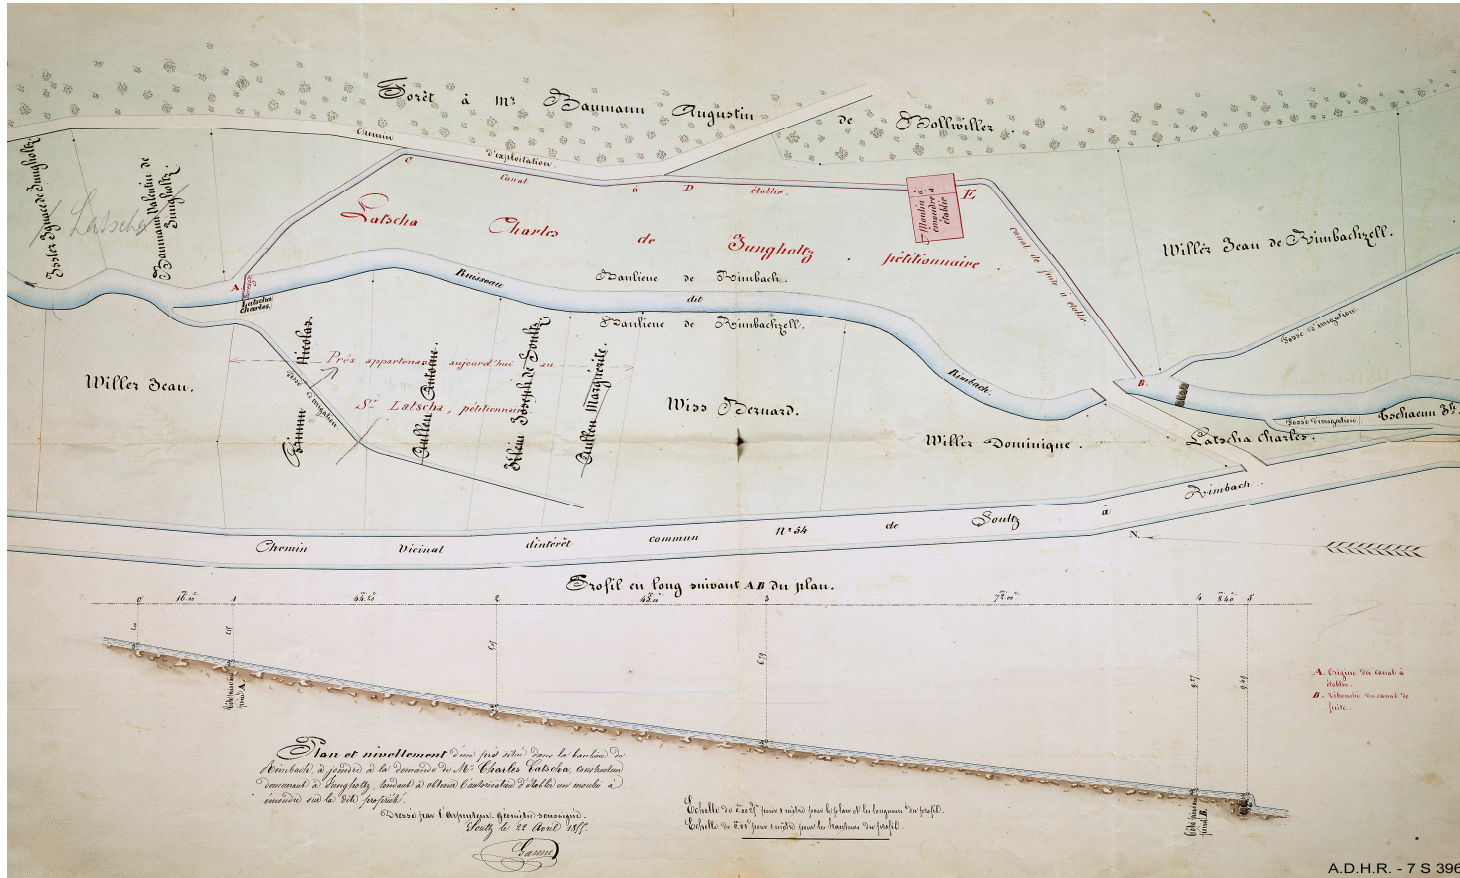 Forêt à Mr Baumann Augustin de Bollwiller.
Chemin d'exploitation.
Canal à établir.
C
D
E
Moulin à
émoudre à
établir
canal de fuite à établir.
Latscha
Baumann Valentin de
Jungholtz.
Latscha Charles de Jungholtz. pétitionnaire.
Willer Jean de Rimbachzell.
A.
Barrage
Latscha
Charles.
Ruisseau dit Rimbach.
Banlieue de Rimbach.
Banlieue de Rimbachzell.
Fossé d'irrigation.
B.
Willer Jean.
Nicolas.
Fossé d'irrigation.
Prés appartenant aujourd'hui au
Sr. Latscha, pétitionnaire
Cullen Antoine.
Klein Joseph de Soultz.
Cullen Marguerite.
Wiss Bernard.
Willer Dominique.
Latscha Charles.
Fossé d'irrigation.
Tschaenn
Chemin Vicinal d'intérêt commun No 54 de Soultz à Rimbach.
N.
Profil en long suivant AB du plan.
0 16.00 1 44.20 2 45.00 3 72.00 4 8.40 5
6,79
9,27
9,49
point A.
point B.
A. Origine du canal à
établir.
B. Débouché du canal de
fuite.
Plan et nivellement d'un pré situé dans la banlieue de
Rimbach, à joindre à la demande de Mr. Charles Latscha, constructeur
demeurant à Jungholtz, tendant à obtenir l'autorisation d'établir un moulin à
émoudre sur la dite propriété.
Dressé par l'Arpenteur Géomètre soussigné.
Soultz le 22 Avril
Echelle de pour 1 mètre pour le plan et les longueurs du profil.
Echelle de pour 1 mètre pour les hauteurs du profil.
A.D.H.R. - 7 S 396